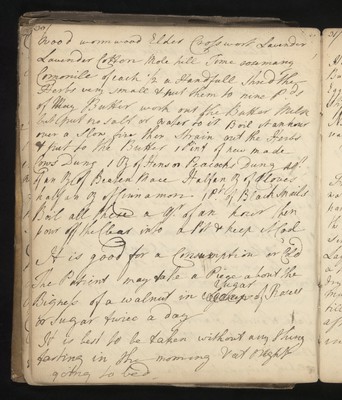 Wood wormwood Elder Crosswort Lavender
Lavender Cotton Mole hill Time
of each ½ a Handfull Shred the
Herbs very small & put them to nine Pds
of May Butter work out the Butter
but put no salt or water to it Boil it an hour
over a Slow fire then Strain out the Herbs
& put to the Butter 1 Pint of new made
Cows Dung 1 Qt of Hens or Peacocks Dung
of an Oz of Beaten Mace Half an Oz of Cloves
half an Oz of Cinnamon 1 Pt of Black Snails
Boil all these a Qr of an hour then
pour off the Clear into a Pot & keep it
It is good for a Consumption or Cold
The Patient may take a Piece about the
Bigness of a walnut in Sugar of Roses
or Sugar twice a day
It is best to be taken without any thing
fasting in the morning & at night
going to bed